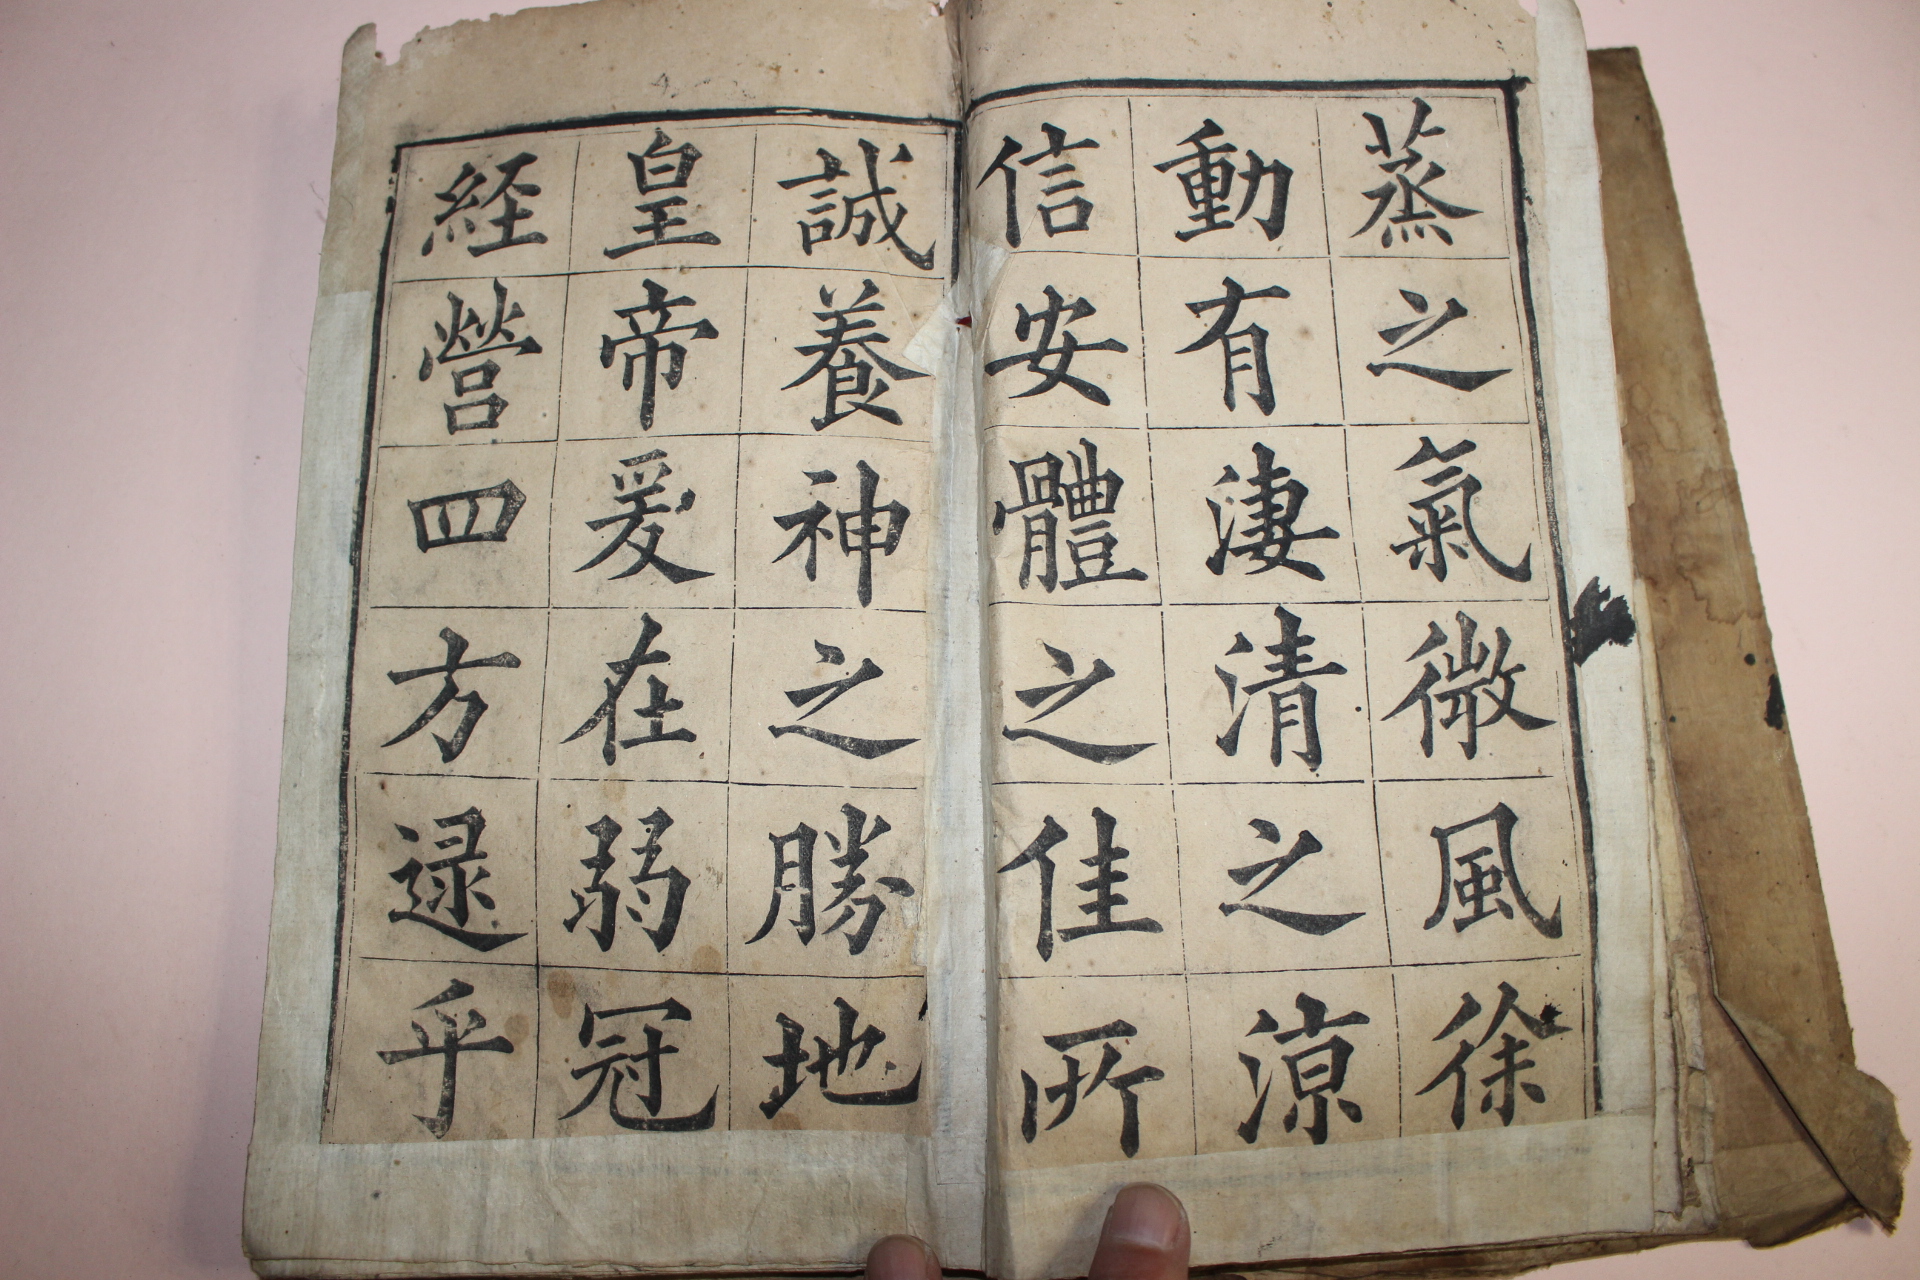 蒸之氣微風徐
動有淒清之涼
信安體之佳所
誠養神之勝地
皇帝爰在弱冠
経營四方逯乎